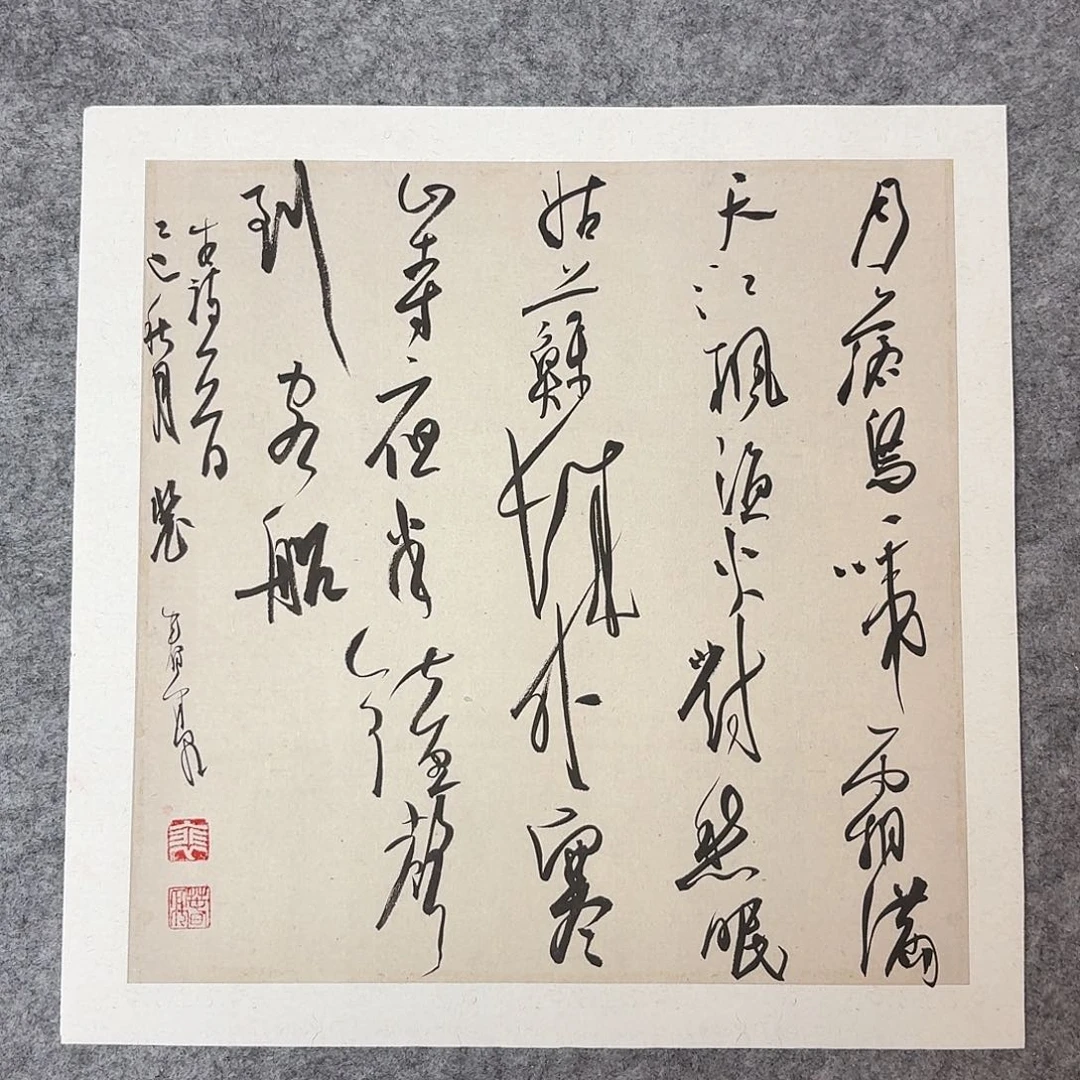 月落烏啼霜滿
天江楓漁火對愁眠
姑蘇城外寒
山寺夜半鐘聲
到客船
古詩一首
乙巳秋月